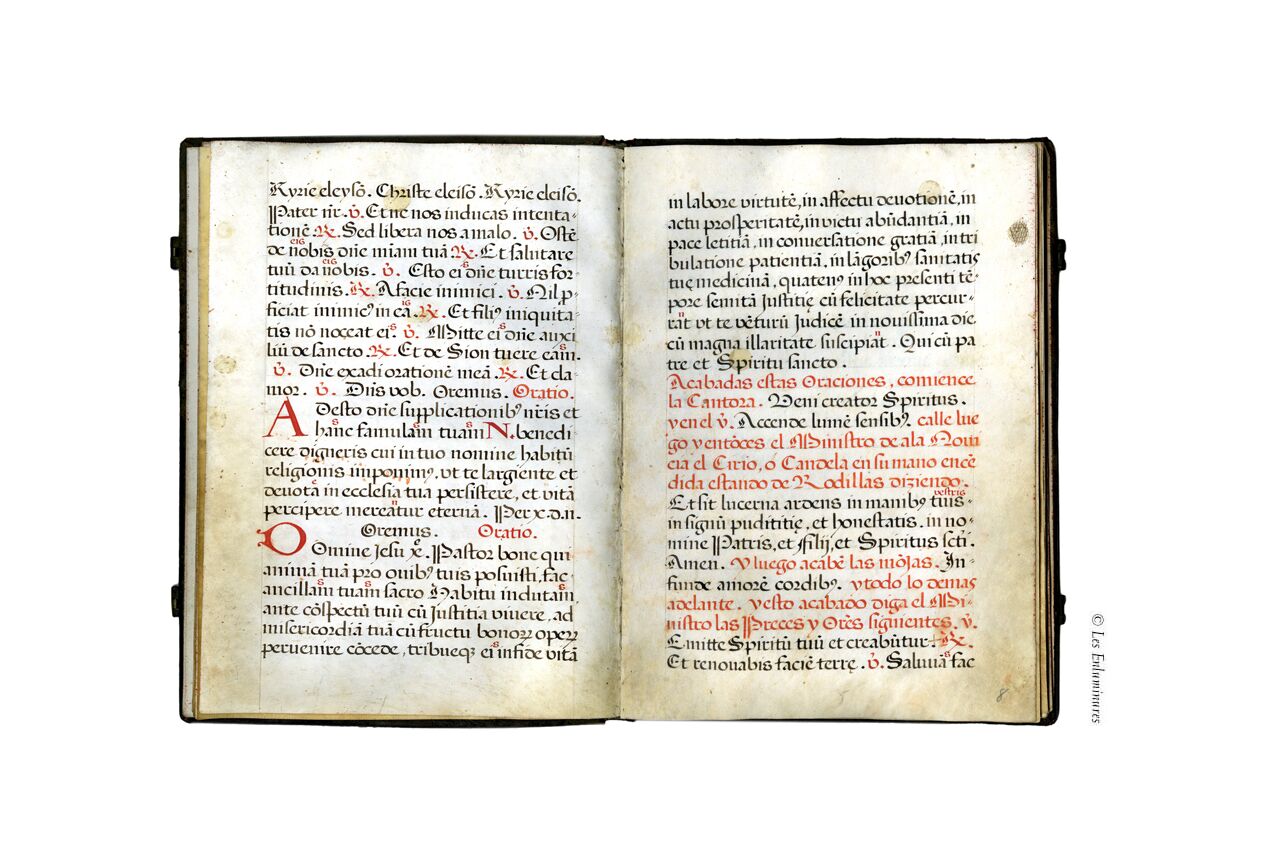 Kyrie eleysõ. Christe eleisõ. Kyrie eleisõ.
Pater nr̃. ℣. Et ne nos inducas in tenta-
tionẽ ℟. Sed libera nos a malo. ℣. Ostẽ
de nobis dñe miam̃ tuã ℟. Et salutare
eis
tuũ da nobis. ℣. Esto ei dñe turris for-
eis
s
titudinis. ℟. A facie inimici. ℣. Nil p-
ficiat inimicꝰ in eã. ℟. Et filiꝰ iniquita-
is
tis nõ noceat ei ℣. Mitte ei dñe auxi
s
s
liũ de sancto. ℟. Et de Sion tuere eam.
s
℣. Dñe exadi orationẽ meã. ℟. Et cla-
mor. ℣. Dñs vob. Oremus. Oratio.
Adesto dñe supplicationibꝰ nr̃is et
hanc famulam tuam N. benedi
s
s
cere digneris cui in tuo nomine habitũ
religionis inponimꝰ, vt te largiente et
devota in ecclesia tua persistere, et vitã
percipere mereatur eternã. Per x.d.n.
Oremus. Oratio.
Domine Jesu xẽ. Pastor bone qui
animã tuã pro ouibꝰ tuis posuisti, fac
ancillam tuam sacro Habitu indutam,
s
s
s
ante cõspectũ tuũ cũ Justitia viuere, ad
misericordiã tuã cũ fructu bonoꝝ opeꝝ
peruenire cõcede, tribueqꝫ ei in fide vitã
s
in labore virtutẽ, in affectu deuotionẽ, in
actu prosperitatẽ, in victu abũdantiã, in
pace letitiã, in conuersatione gratiã, in tri
bulatione patientiã, in lãgoribꝰ sanitatis
tuę medicinã, quatenꝰ in hoc presenti tẽ-
pore semitã Justitię cũ felicitate percur-
rãt vt te vẽturũ Judicẽ in nouissima die
cũ magna illaritate suscipiãt. Qui cũ pa
tre et Spiritu sancto.
Acabadas estas Oraciones, comience
la Cantora. Veni creator Spiritus.
y en el ℣. Accende lumẽ sensibꝰ. calle lue
go y entõces el Ministro de a la Noui
cia el Cirio, ó Candela en su mano encẽ
dida estando de Rodillas diziendo.
Et sit lucerna ardens in manibꝰ tuis
vestris
in signũ pudititię, et honestatis. in no-
mine Patris, et filij, et Spiritus scti.
Amen. Y luego acabẽ las mõjas. In-
funde amorẽ cordibꝰ. y todo lo demas
adelante. y esto acabado diga el Mi-
nistro las Preces y Orẽs siguientes. ℣.
Emitte Spiritũ tuũ et creabũtur. ℟.
Et renouabis faciẽ terrę. ℣. Saluũã fac
s
8
© Les Enluminures